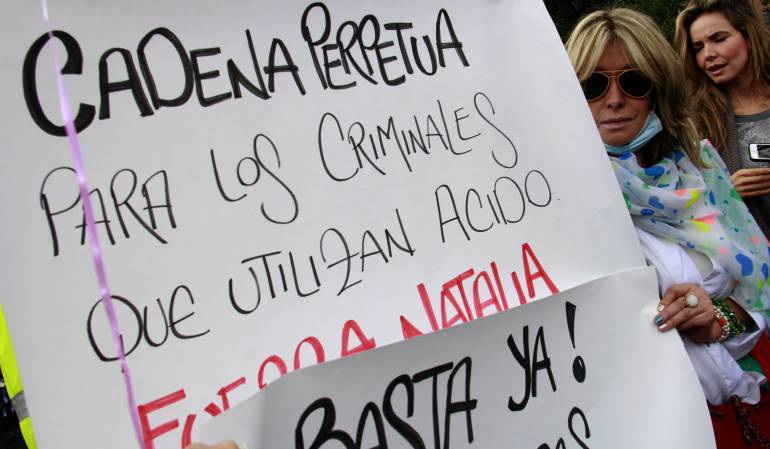 CADENA PERPETUA
PARA LOS CRIMINALES
QUE UTILIZAN ACIDO.
FUERZA NATALIA
BASTA YA!